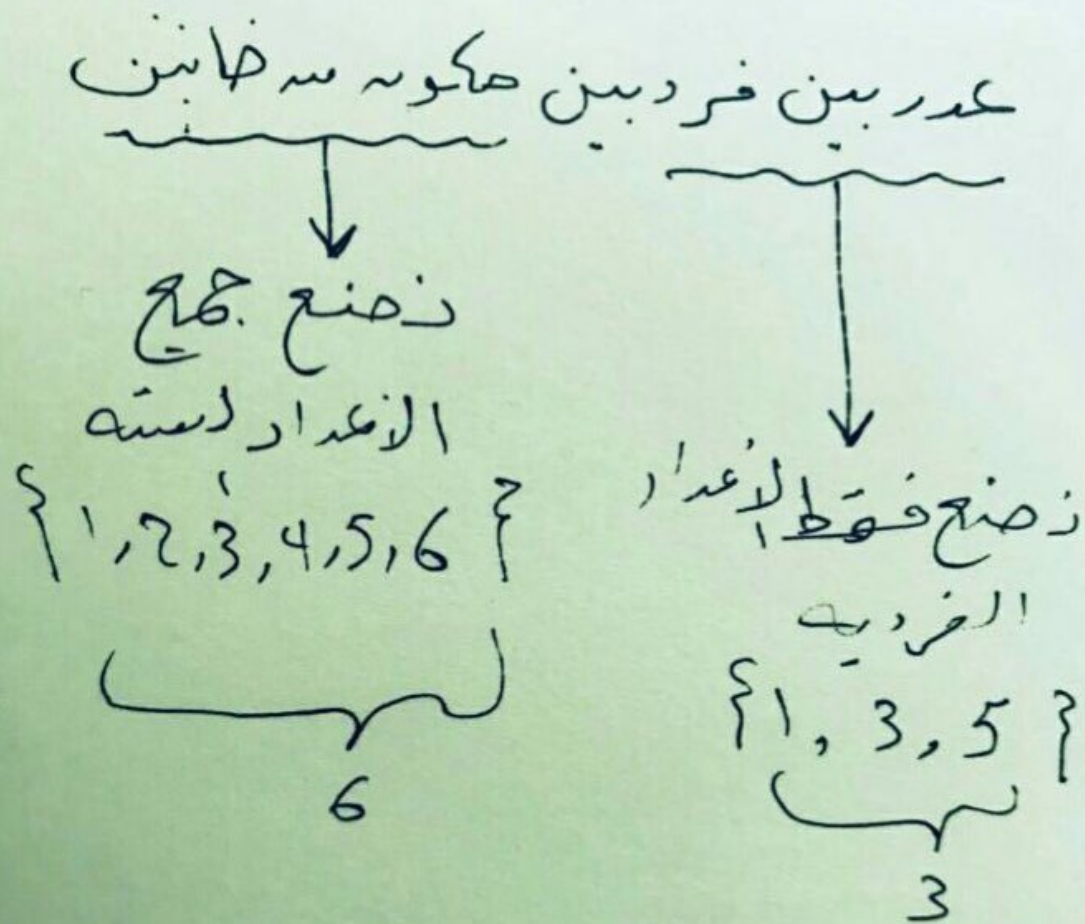 عددين فرديين مكونه من خانتين
نضع جميع
الاعداد الستة
{ 1, 2, 3, 4, 5, 6 }
6
نضع فقط الاعداد
الفردية
{ 1, 3, 5 }
3